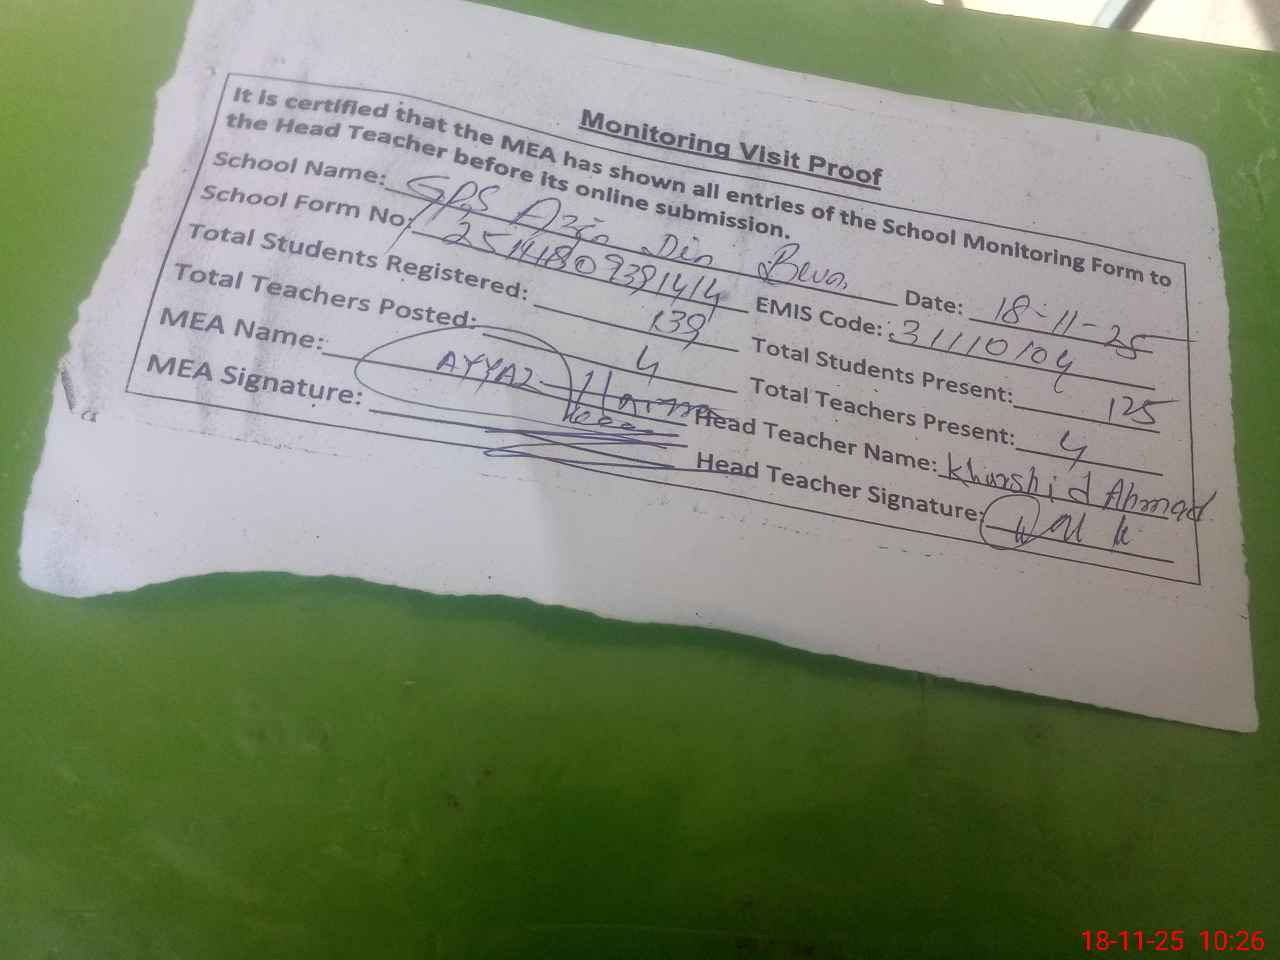 Monitoring Visit Proof
It is certified that the MEA has shown all entries of the School Monitoring Form to
the Head Teacher before its online submission.
School Name: GPS Azim Din Date: 18-11-25
School Form No: EMIS Code: 31110104
Total Students Registered: 139 Total Students Present: 125
Total Teachers Posted: 4 Total Teachers Present: 4
MEA Name: AYYAZ Head Teacher Name: Khurshid Ahmad
MEA Signature: Head Teacher Signature:
18-11-25 10:26